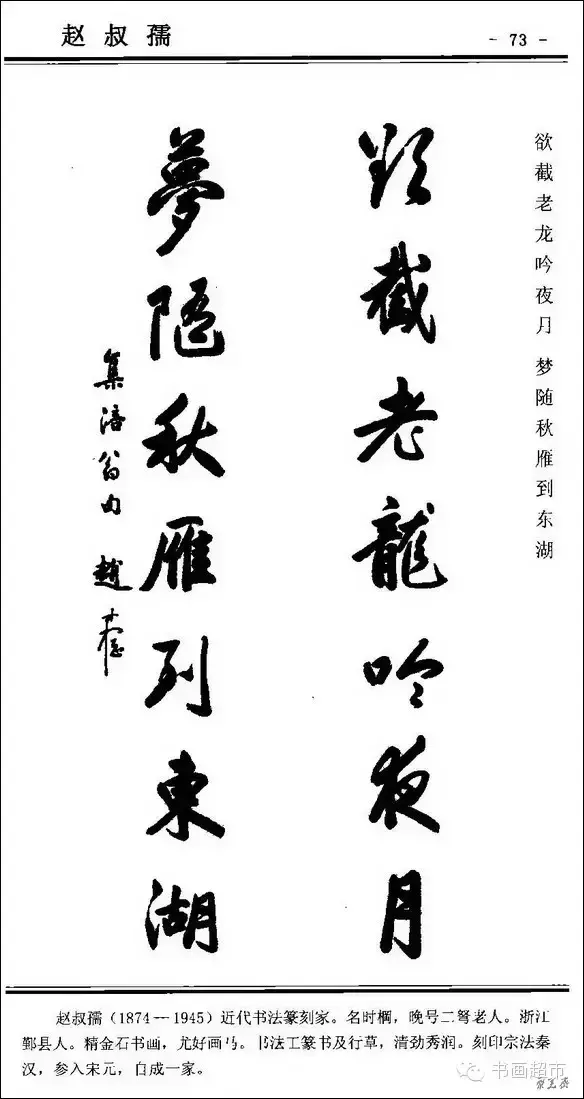 赵叔孺
- 73 -
欲截老龙吟夜月 梦随秋雁到东湖
欲截老龍吟夜月
夢随秋雁到東湖
集涪翁句 趙
赵叔孺(1874—1945)近代书法篆刻家。名时棡,晚号二弩老人。浙江
鄞县人。精金石书画,尤好画马。书法工篆书及行草,清劲秀润。刻印宗法秦
汉,参入宋元,自成一家。
书画超市